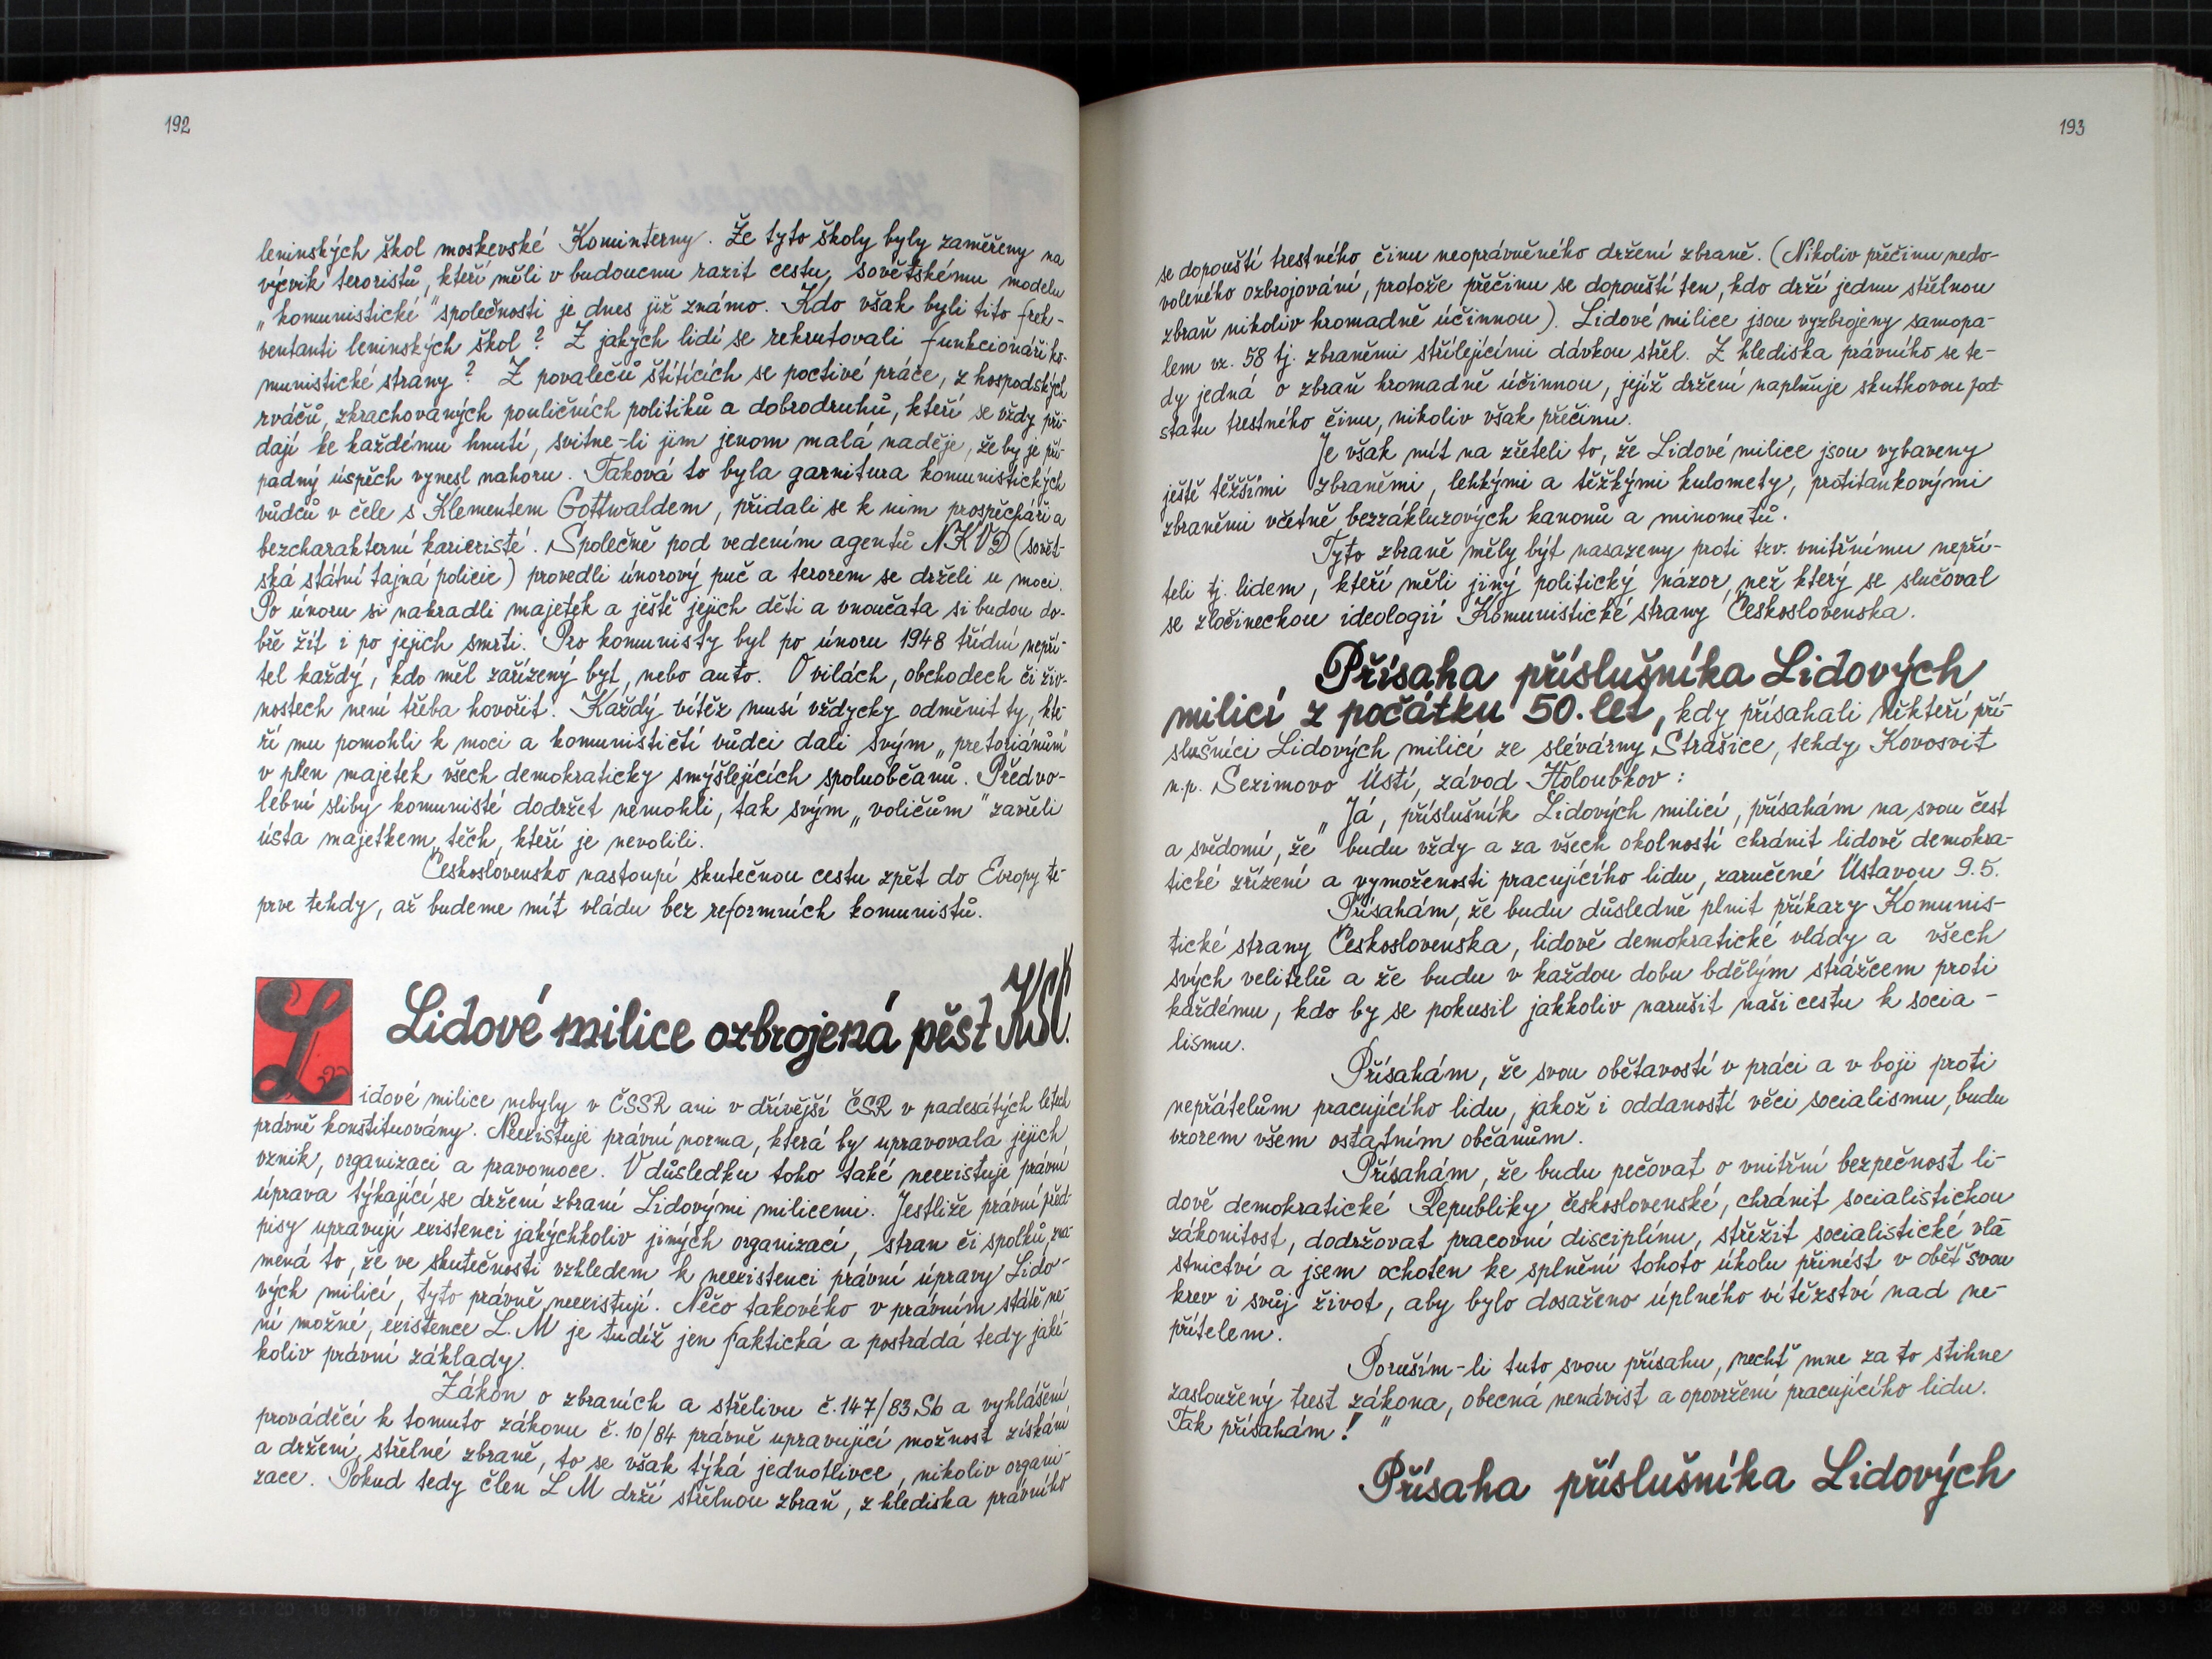 192
leninských škol moskevské Kominterny. Že tyto školy byly zaměřeny na
výcvik teroristů, kteří měli v budoucnu razit cestu sovětskému modelu
„komunistické" společnosti je dnes již známo. Kdo však byli tito frek-
ventanti leninských škol? Z jakých lidí se rekrutovali funkcionáři ko-
munistické strany? Z povalečů štítících se poctivé práce, z hospodských
rváčů, zkrachovaných pouličních politiků a dobrodruhů, kteří se vždy při-
dají ke každému hnutí, svitne-li jim jenom malá naděje, že by je pří-
padný úspěch vynesl nahoru. Taková to byla garnitura komunistických
vůdců v čele s Klementem Gottwaldem, přidali se k nim prospěcháři a
bezcharakterní karieristé. Společně pod vedením agentů NKVD (sovět-
ská státní tajná policie) provedli únorový puč a terorem se drželi u moci.
Po únoru si nakradli majetek a ještě jejich děti a vnoučata si budou do-
bře žít i po jejich smrti. Pro komunisty byl po únoru 1948 třídní nepří-
tel každý, kdo měl zařízený byt, nebo auto. O vilách, obchodech či živ-
nostech není třeba hovořit. Každý vítěz musí vždycky odměnit ty, kte-
ří mu pomohli k moci a komunističtí vůdci dali svým „pretoriánům"
v plen majetek všech demokraticky smýšlejících spoluobčanů. Předvo-
lební sliby komunisté dodržet nemohli, tak svým „voličům" zavřeli
ústa majetkem těch, kteří je nevolili.
Československo nastoupí skutečnou cestu zpět do Evropy te-
prve tehdy, až budeme mít vládu bez reformních komunistů.
Lidové milice ozbrojená pěst KSČ.
Lidové milice nebyly v ČSSR ani v dřívější ČSR v padesátých letech
právně konstituovány. Neexistuje právní norma, která by upravovala jejich
vznik, organizaci a pravomoce. V důsledku toho také neexistuje právní
úprava týkající se držení zbraní Lidovými milicemi. Jestliže právní před-
pisy upravují existenci jakýchkoliv jiných organizací, stran či spolků, zna-
mená to, že ve skutečnosti vzhledem k neexistenci právní úpravy Lido-
vých milicí, tyto právně neexistují. Něco takového v právním státě ne-
ní možné, existence L.M je tudíž jen faktická a postrádá tedy jaké-
koliv právní základy.
Zákon o zbraních a střelivu č.147/83 Sb a vyhlášení
prováděcí k tomuto zákonu č. 10/84 právně upravující možnost získání
a držení střelné zbraně, to se však týká jednotlivce, nikoliv organi-
zace. Pokud tedy člen L M drží střelnou zbraň, z hlediska právního
193
se dopouští trestného činu neoprávněného držení zbraně. (Nikoliv přečinu nedo-
voleného ozbrojování, protože přečinu se dopouští ten, kdo drží jednu střelnou
zbraň nikoliv hromadně účinnou). Lidové milice jsou vyzbrojeny samopa-
lem vz. 58 tj. zbraněmi střílejícími dávkou střel. Z hlediska právního se te-
dy jedná o zbraň hromadně účinnou, jejíž držení naplňuje skutkovou pod-
statu trestného činu, nikoliv však přečinu.
Je však mít na zřeteli to, že Lidové milice jsou vybaveny
ještě těžšími zbraněmi, lehkými a těžkými kulomety, protitankovými
zbraněmi včetně bezzákluzových kanonů a minometů.
Tyto zbraně měly být nasazeny proti tzv. vnitřnímu nepří-
teli tj. lidem, kteří měli jiný politický názor, než který se slučoval
se zločineckou ideologií Komunistické strany Československa.
Přísaha příslušníka Lidových
milicí z počátku 50. let, kdy přísahali někteří pří-
slušníci Lidových milicí ze slévárny Strašice, tehdy Kovosvit
n.p. Sezimovo Ústí, závod Holoubkov:
„Já, příslušník Lidových milicí, přísahám na svou čest
a svědomí, že budu vždy a za všech okolností chránit lidově demokra-
tické zřízení a vymoženosti pracujícího lidu, zaručené Ústavou 9.5.
Přísahám, že budu důsledně plnit příkazy Komunis-
tické strany Československa, lidově demokratické vlády a všech
svých velitelů a že budu v každou dobu bdělým strážcem proti
každému, kdo by se pokusil jakkoliv narušit naši cestu k socia-
lismu.
Přísahám, že svou obětavostí v práci a v boji proti
nepřátelům pracujícího lidu, jakož i oddaností věci socialismu, budu
vzorem všem ostatním občanům.
Přísahám, že budu pečovat o vnitřní bezpečnost li-
dově demokratické Republiky československé, chránit socialistickou
zákonitost, dodržovat pracovní disciplínu, střežit socialistické vla
stnictví a jsem ochoten ke splnění tohoto úkolu přinést v oběť svou
krev i svůj život, aby bylo dosaženo úplného vítězství nad ne-
přítelem.
Poruším-li tuto svou přísahu, nechť mne za to stihne
zasloužený trest zákona, obecná nenávist a opovržení pracujícího lidu.
Tak přísahám!"
Přísaha příslušníka Lidových